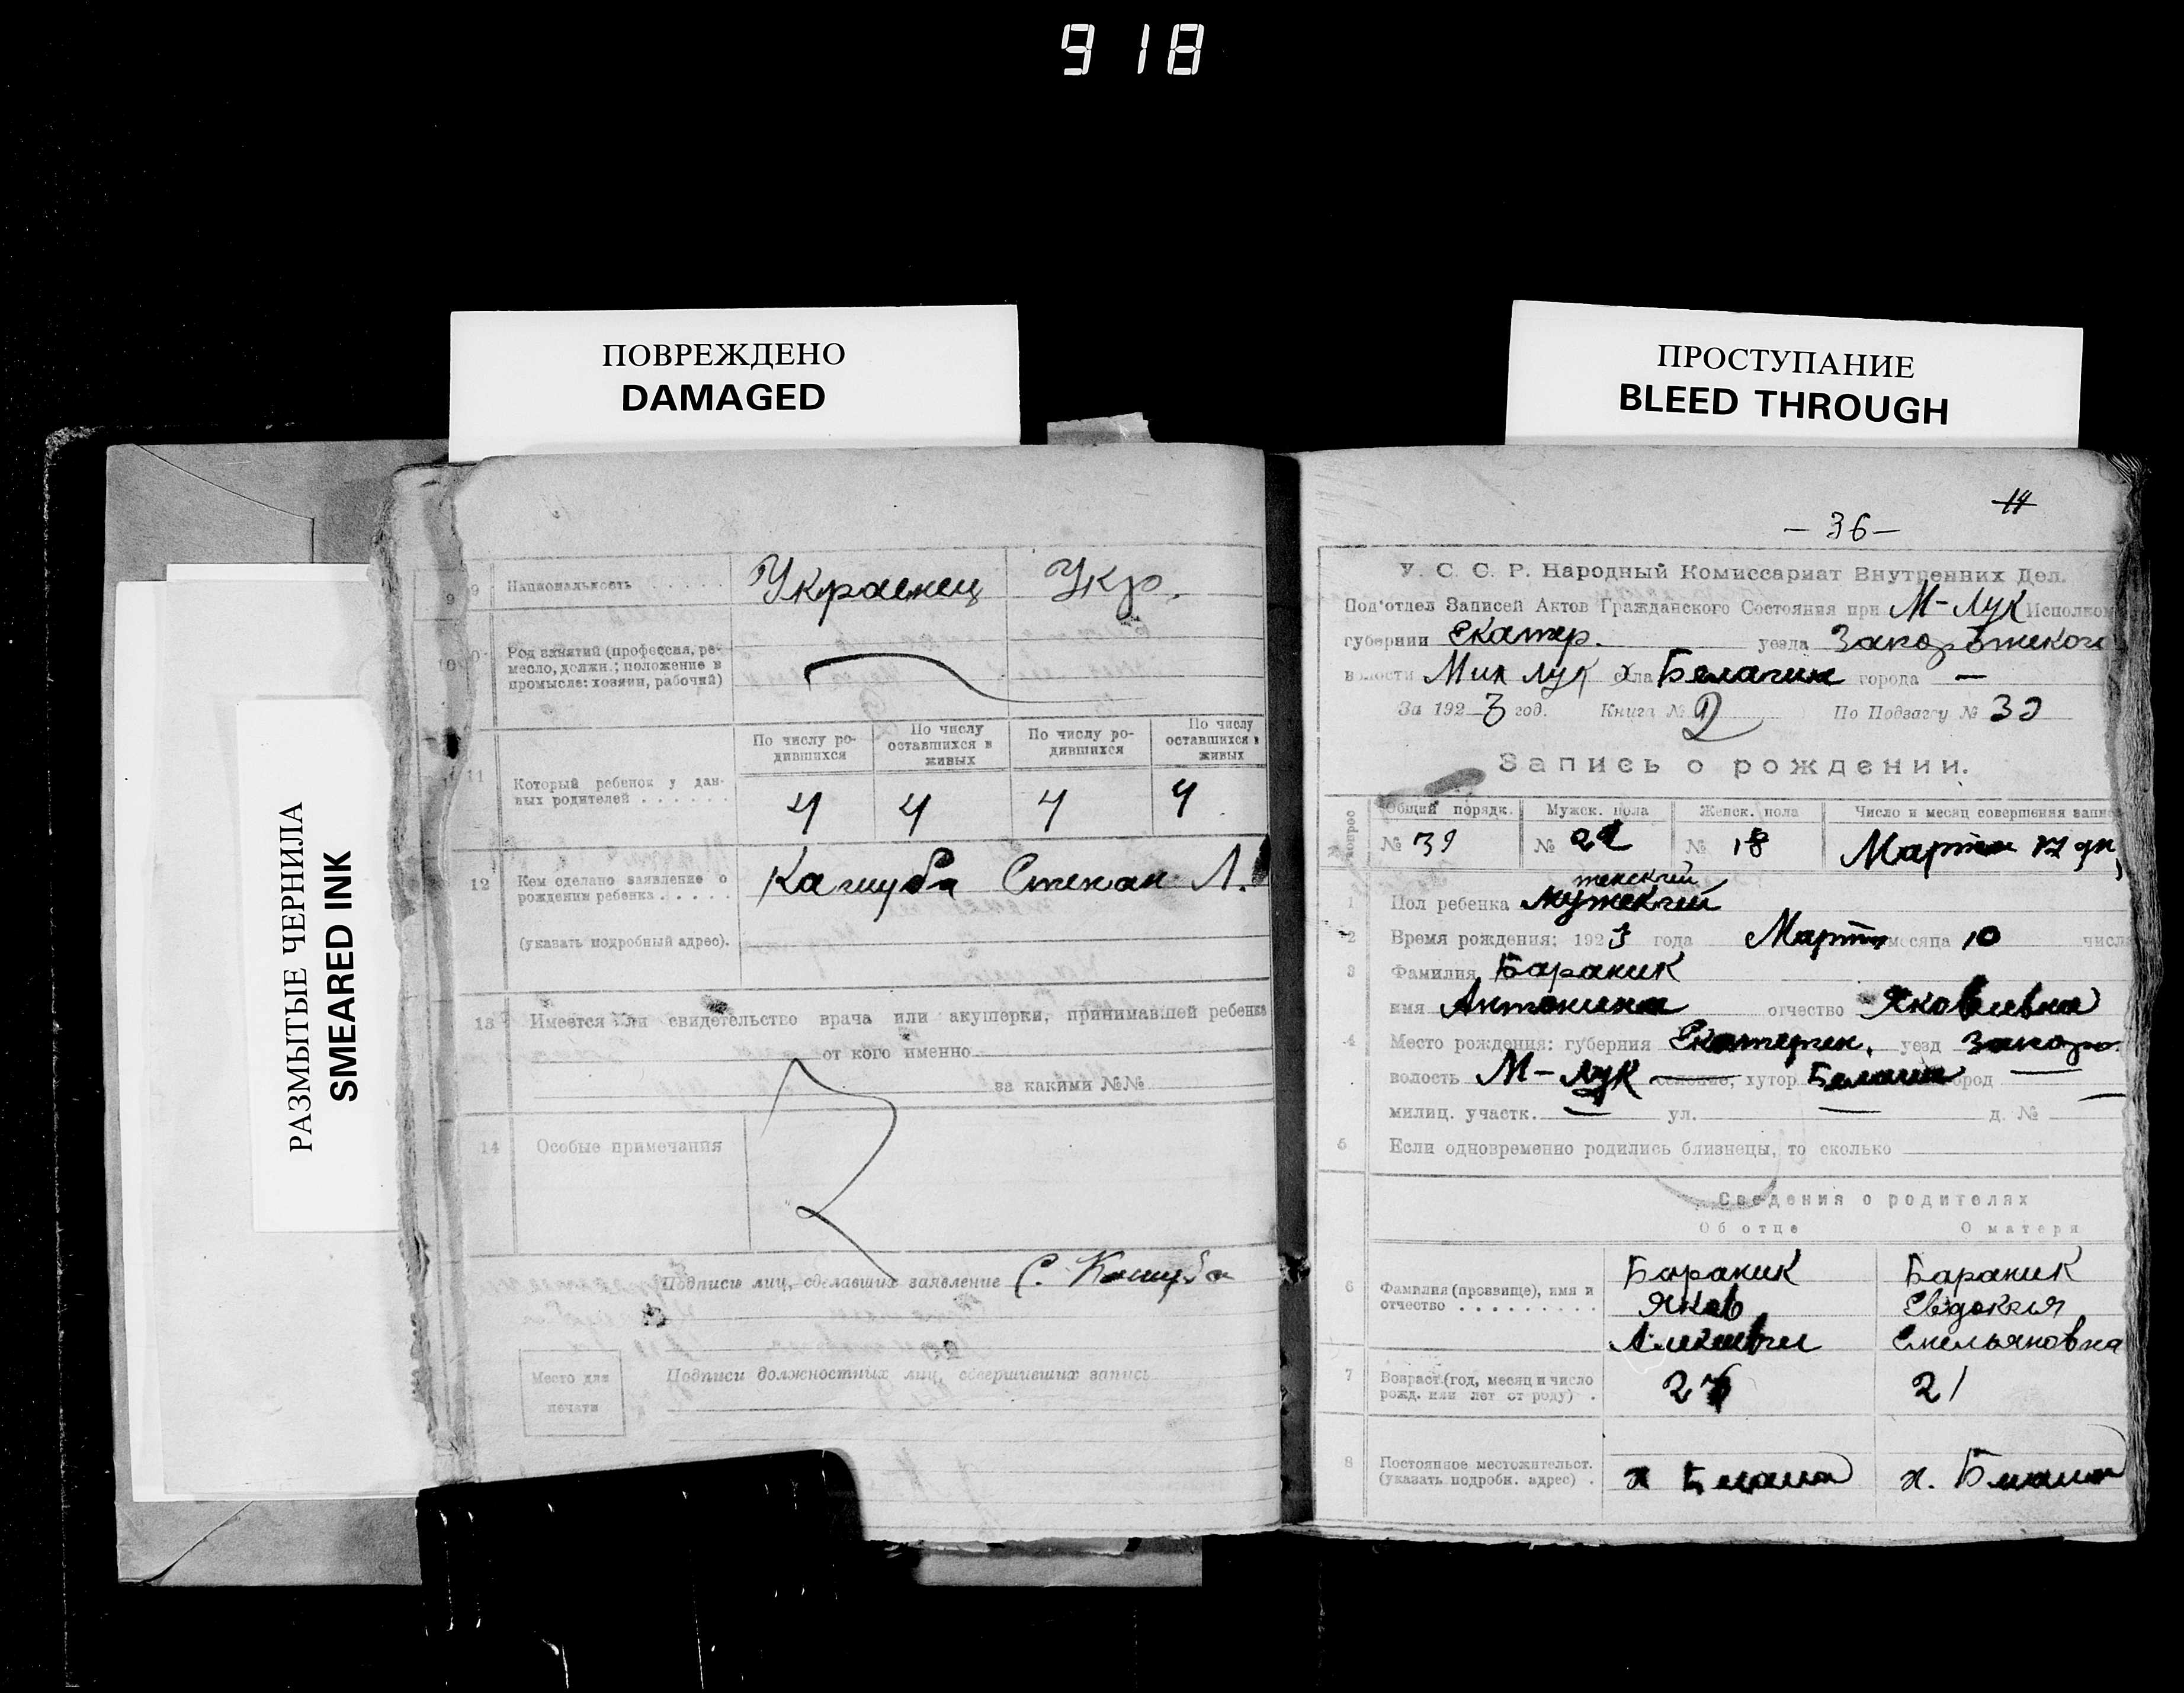 918
ПОВРЕЖДЕНО
DAMAGED
ПРОСТУПАНИЕ
BLEED THROUGH
РАЗМЫТЫЕ ЧЕРНИЛА
SMEARED INK
9 9 Национальность . . . . . Украенец Укр.
10 Род занятий (профессия, ре-
месло, должн.; положение в
промысле: хозяин, рабочий)
По числу ро- По числу По числу ро- По числу
дившихся оставшихся в дившихся оставшихся в
живых живых
11 Который ребенок у дан-
ных родителей . . . . . . 4 4 4 4
12 Кем сделано заявление о Кашуба Степан Л.
рождении ребенка . . . . .
(указать подробный адрес).
13 Имеется ли свидетельство врача или акушерки, принимавшей ребенка
от кого именно
за какими №№
14 Особые примечания
Подписи лиц, сделавших заявление С. Кашуба
Место для Подписи должностных лиц, совершивших запись
печати
14
— 36 —
У. С. С. Р. Народный Комиссариат Внутренних Дел.
Под'отдел Записей Актов Гражданского Состояния при М-Лук Исполком
губернии Екатер. уезда
волости Мих Лук города —
За 1923 год. Книга № 2 По Подзагсу № 39
Запись о рождении.
вопрос Общий порядк. Мужск. пола Женск. пола Число и месяц совершения запис
№ 39 № 21 № 18 Марта 17 дн,
женский
1 Пол ребенка Мужской
2 Время рождения: 1923 года Марта месяца 10 числа
3 Фамилия Бараник
имя Антонина отчество Яковлевна
4 Место рождения: губерния Екатерен. уезд Запор.
волость М-Лук селение, хутор город —
милиц. участк. — ул. — д. № —
5 Если одновременно родились близнецы, то сколько
Сведения о родителях
Об отце О матери
6 Фамилия (прозвище), имя и Бараник Бараник
отчество . . . . . . . . . Яков Евдокия
Емельяновна
7 Возраст (год, месяц и число 21
рожд. или лет от роду) .
8 Постоянное местожительст. х х.
(указать подробн. адрес) .